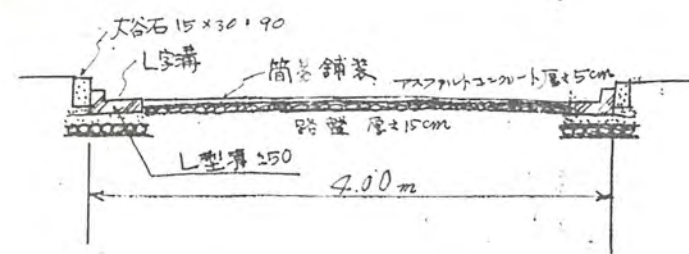 大谷石 15×30×90
L字溝
簡易舗装
アスファルトコンクリート厚さ5cm
路盤 厚さ15cm
L型溝 250
4.00m